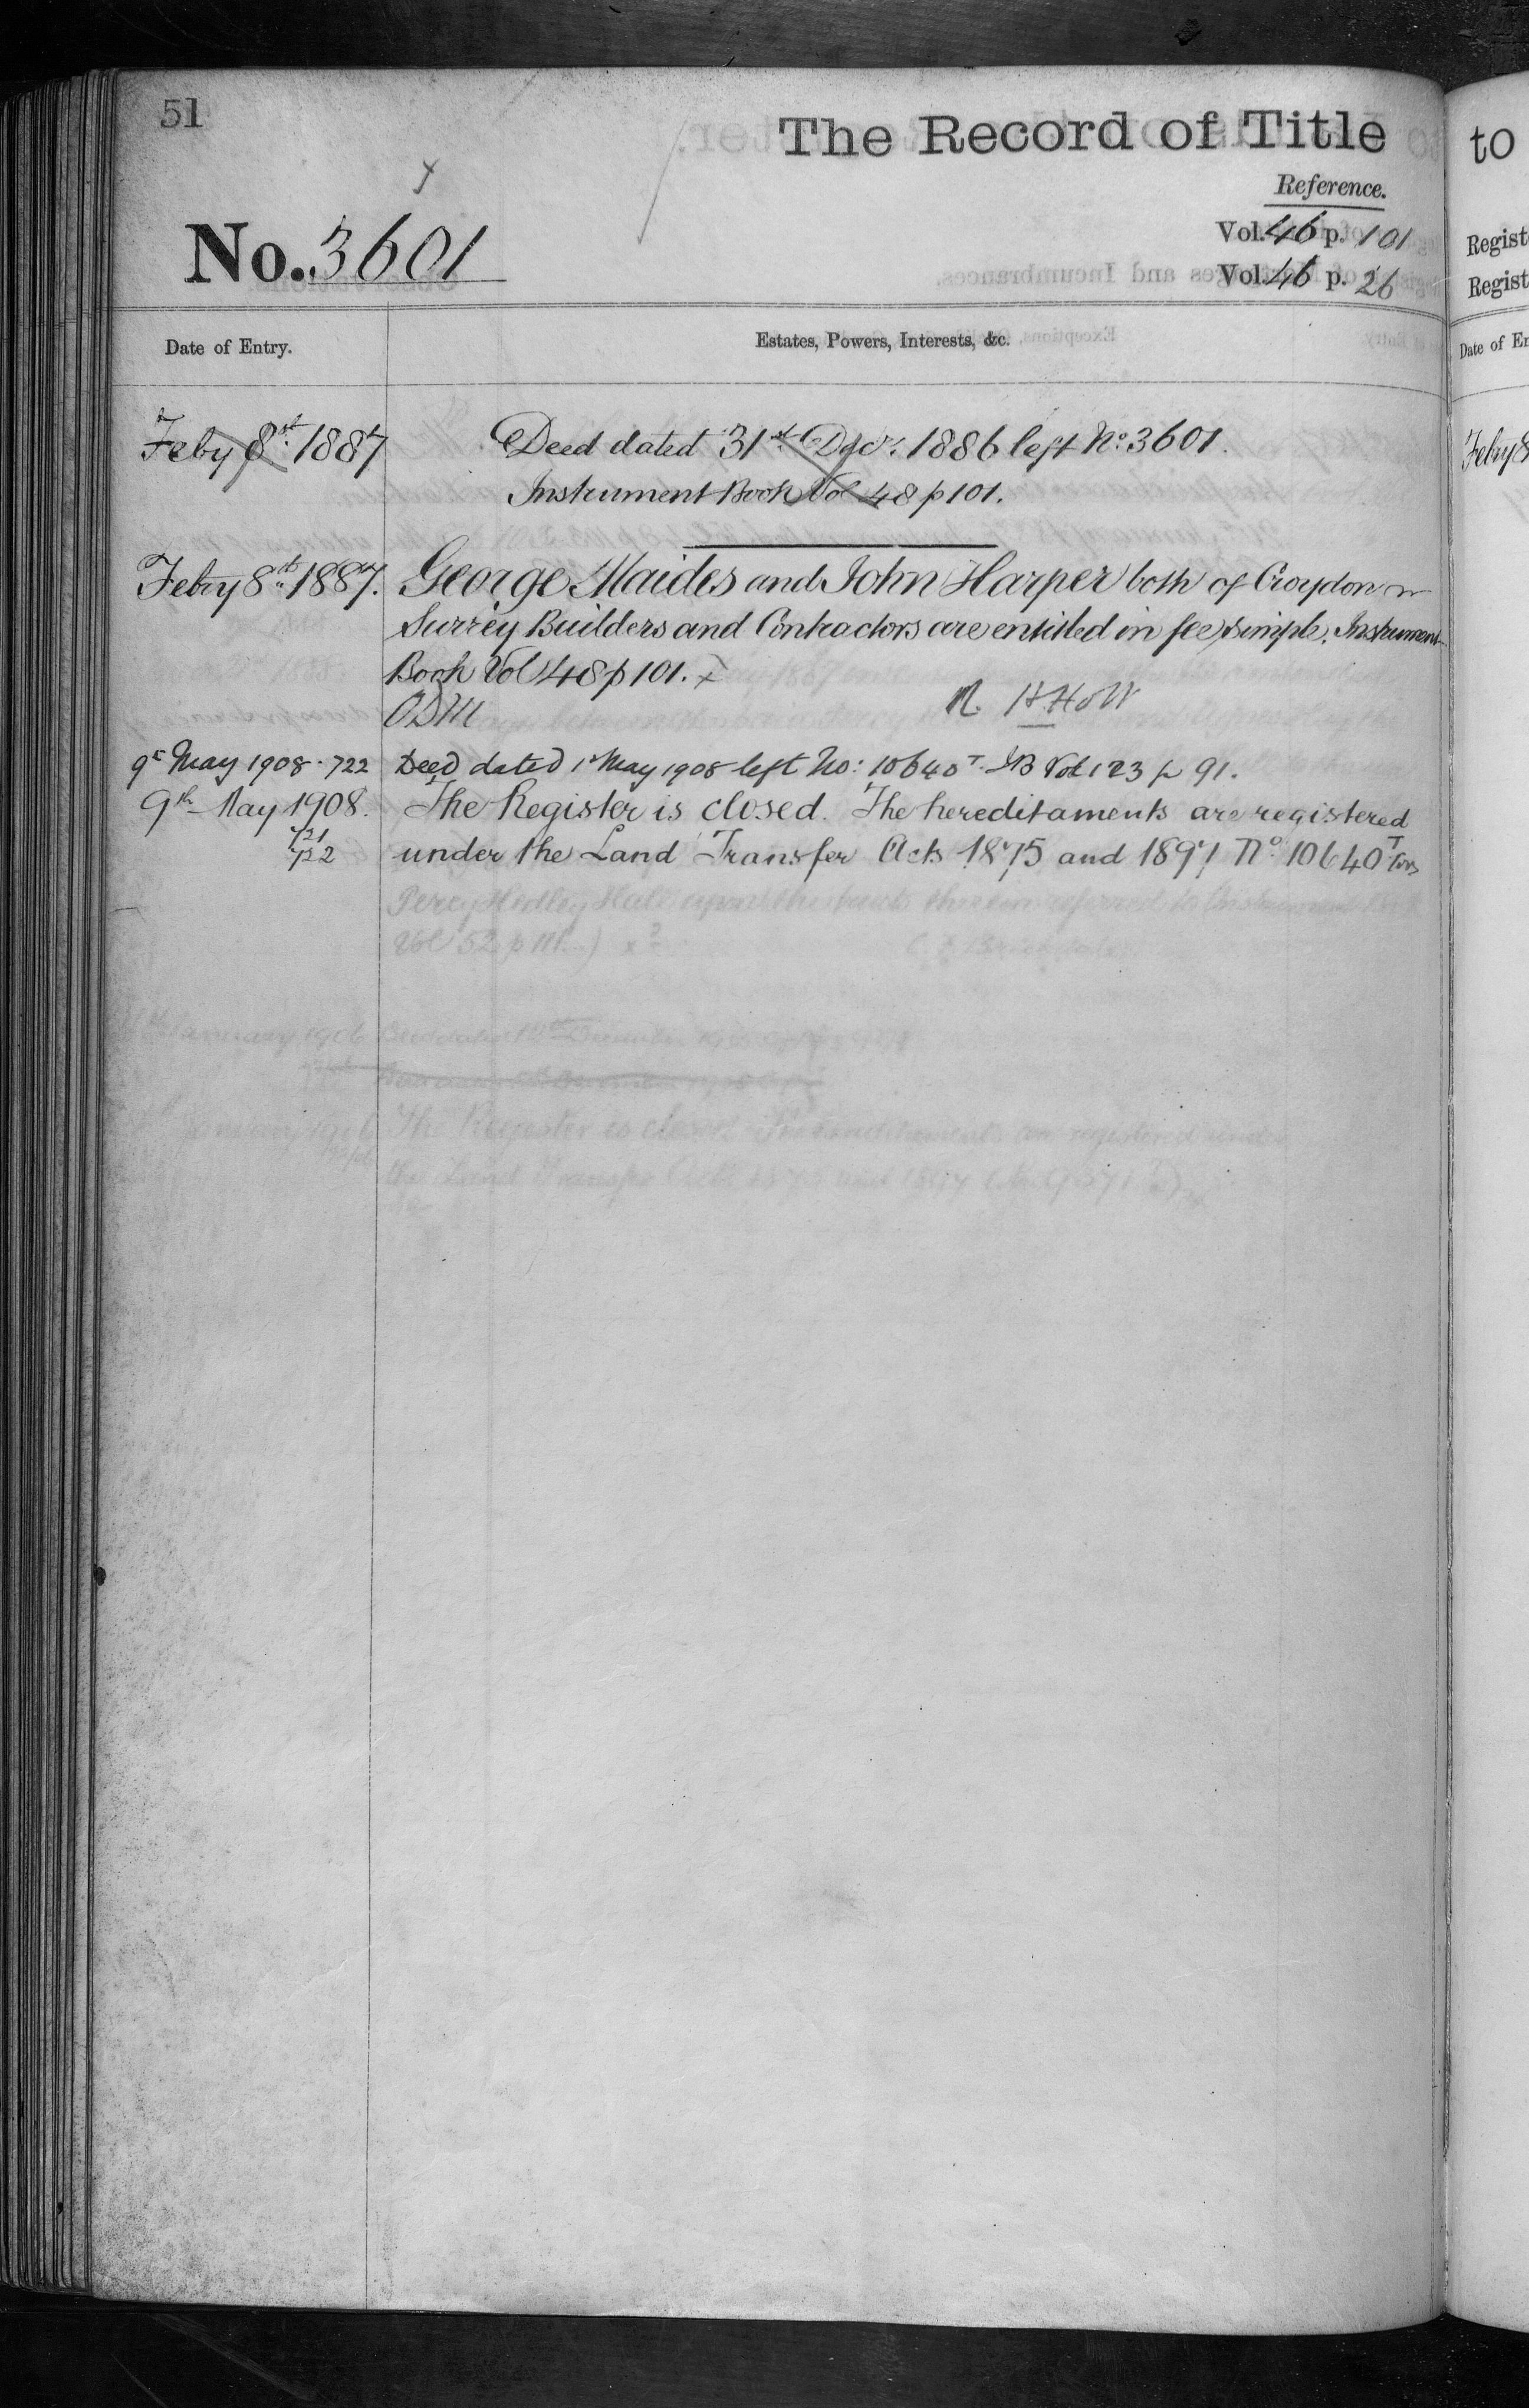 51
The Record of Title
Reference.
No. 3601
Vol. 46 p. 101
Vol. 46 p. 26
Date of Entry.
Estates, Powers, Interests, &c.
Feby 8st 1887
Deed dated 31st Decr. 1886 left No. 3601.
Instrument Book Vol 48 p 101.
Feby 8th 1887.
George Maides and John Harper both of Croydon in
Surrey Builders and Contractors are entitled in fee simple. Instrument
Book Vol 48 p 101.
9th May 1908. 722
Deed dated 1st May 1908 left No: 10640T. IB Vol 123 p 91.
9th May 1908.
721
722
The Register is closed. The hereditaments are registered
under the Land Transfer Acts 1875 and 1897 No. 10640T
to
Regist
Regist
Date of En
Feby 8